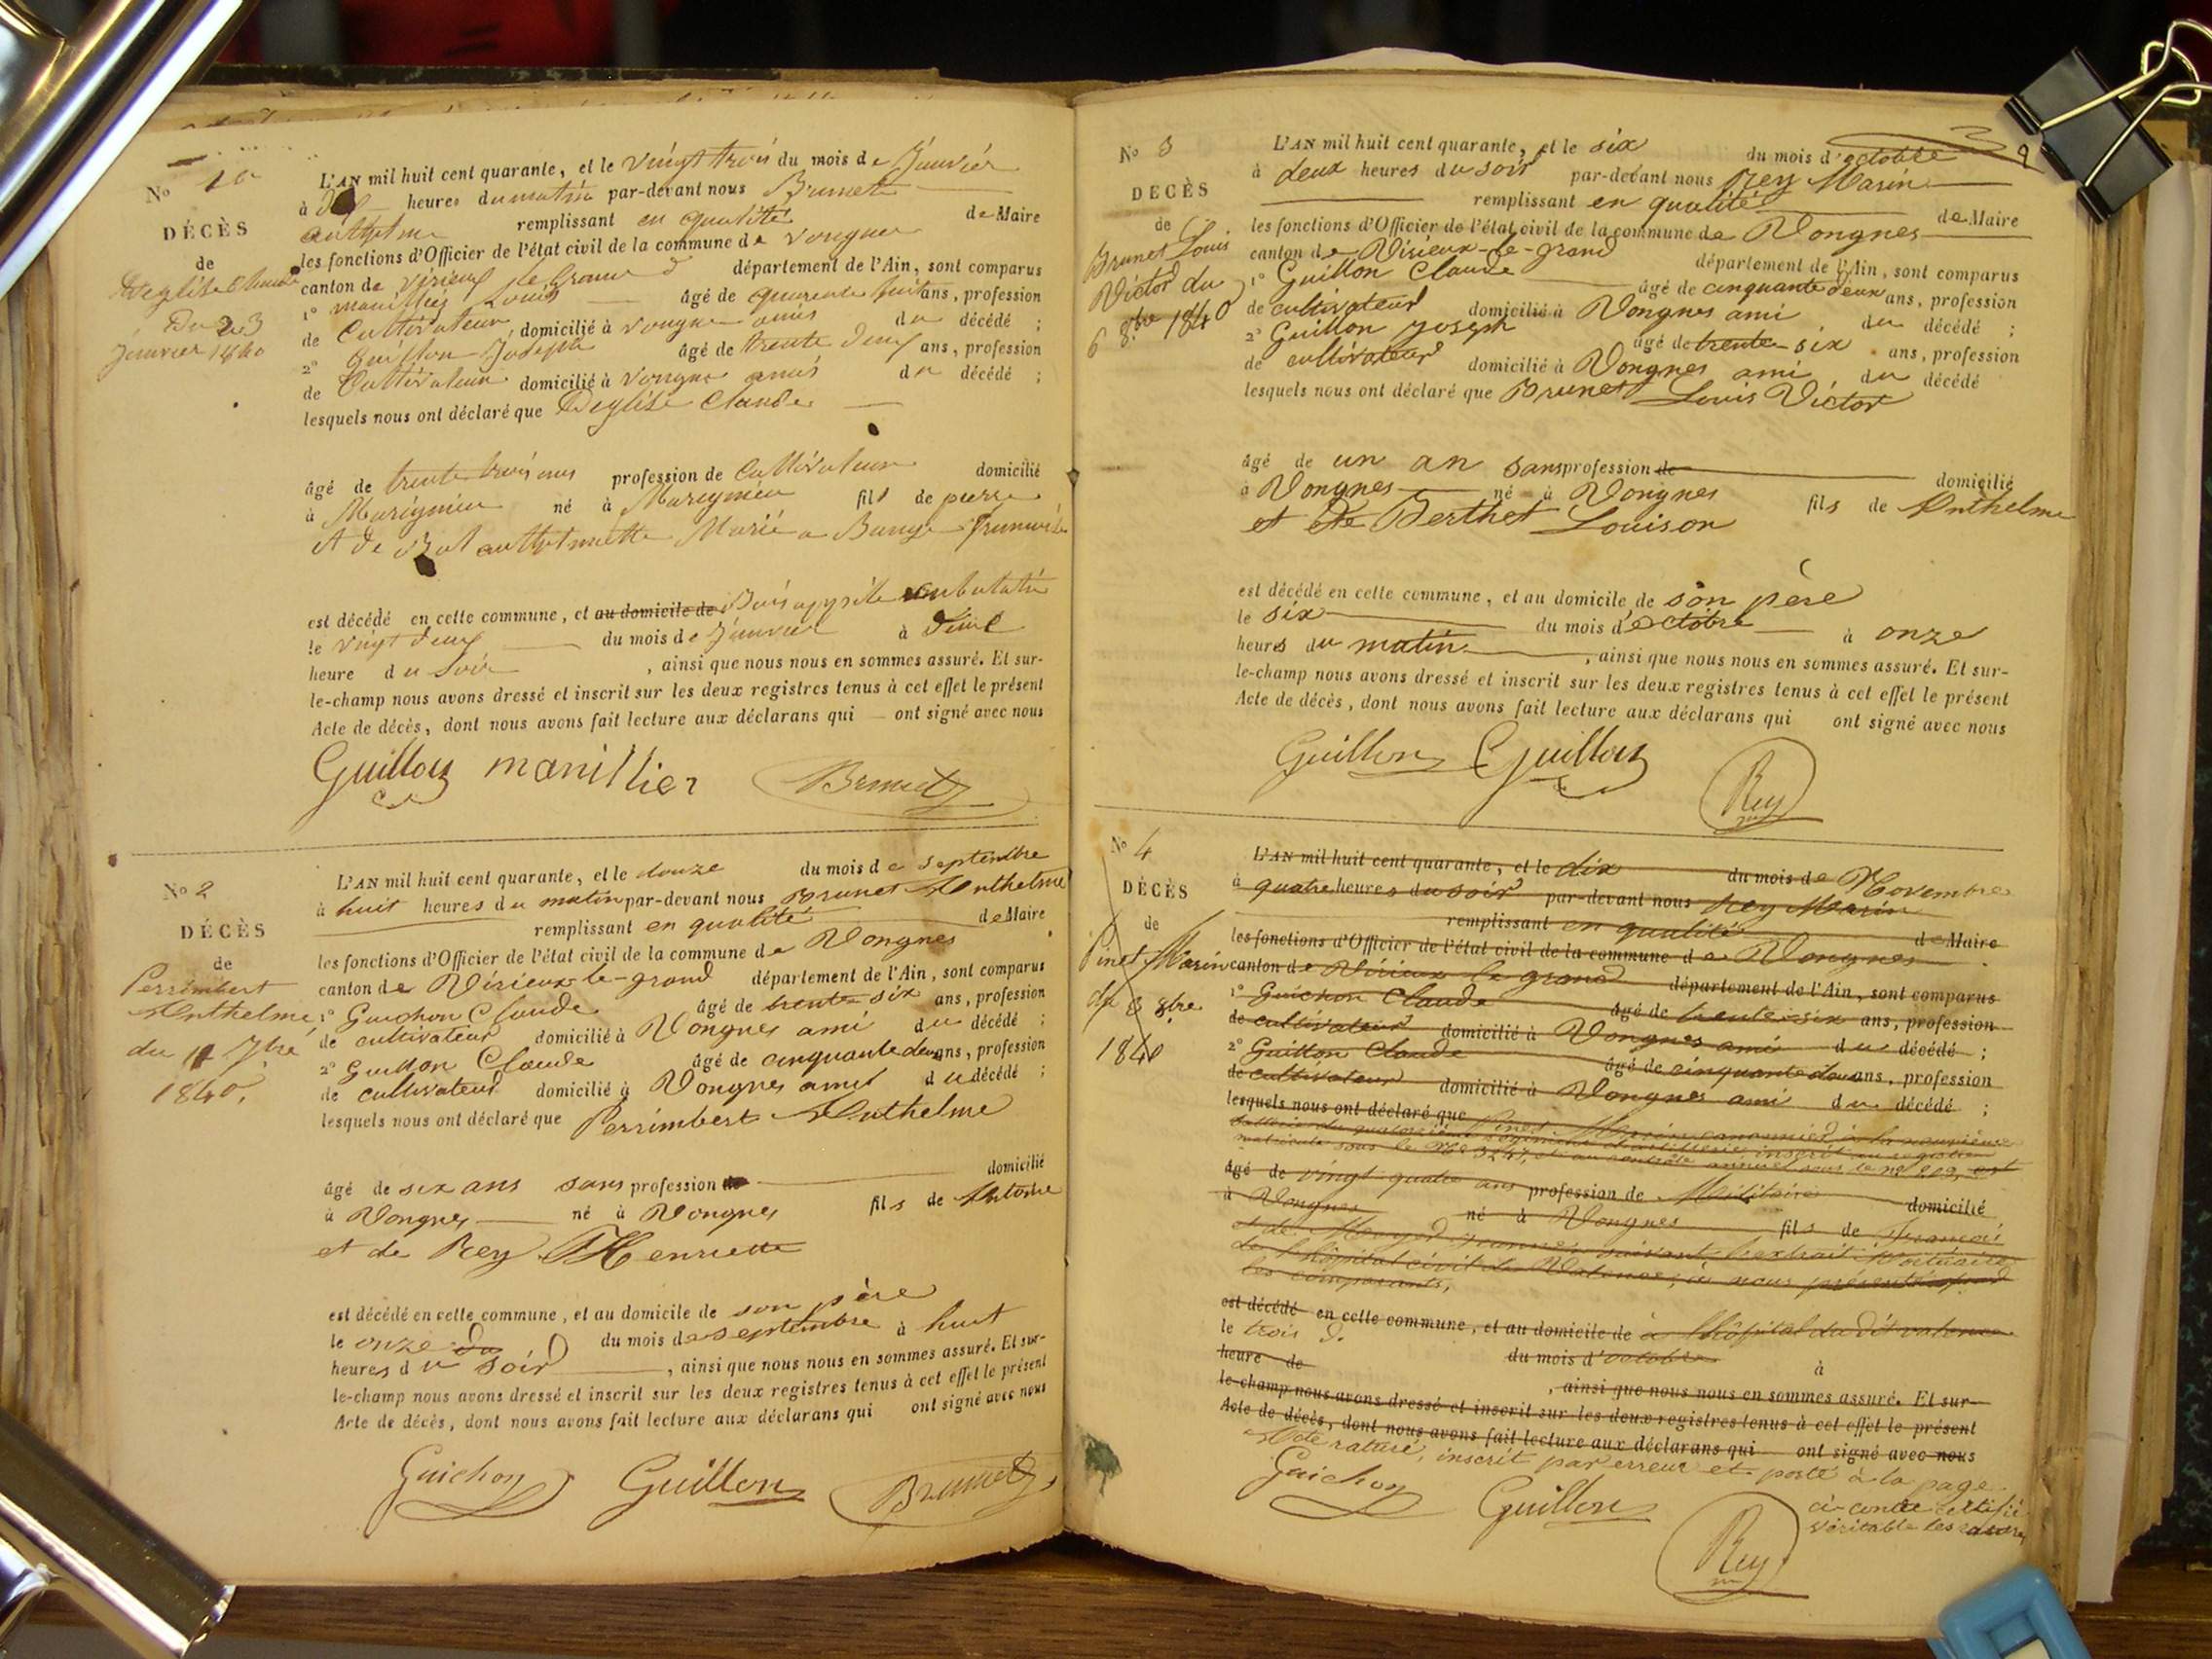 No 1er
DÉCÈS
de
Deglise Claude
Du 23
Janvier 1840
L'AN mil huit cent quarante, et le vingt trois du mois de Janvier
à heures du matin par-devant nous Brunet
anthelme remplissant en qualité de Maire
les fonctions d'Officier de l'état civil de la commune de Vongne
canton de Virieux le Grand département de l'Ain, sont comparus
1° manillier Louis âgé de quarente huit ans, profession
de Cultivateur, domicilié à vongne amis du décédé ;
2° Guillon Joseph âgé de trente deux ans, profession
de Cultivateur domicilié à vongne amis du décédé ;
lesquels nous ont déclaré que Deglise Claude
âgé de trente trois ans profession de Cultivateur domicilié
à Marignieu né à Marignieu fils de pierre
et de anthelmette Marié a
est décédé en cette commune, et au domicile de
le vingt deux du mois de Janvier à
heure du Soir, ainsi que nous nous en sommes assuré. Et sur-
le-champ nous avons dressé et inscrit sur les deux registres tenus à cet effet le présent
Acte de décès, dont nous avons fait lecture aux déclarans qui ont signé avec nous
Guillon manillier Brunet
No 2
DÉCÈS
de
Perrimbert
Anthelme
du 11 7bre
1840.
L'AN mil huit cent quarante, et le douze du mois de septembre
à huit heures du matin par-devant nous Brunet Anthelme
remplissant en qualité de Maire
les fonctions d'Officier de l'état civil de la commune de Vongnes
canton de Virieux-le-grand département de l'Ain, sont comparus
1° Guichon Claude âgé de trente six ans, profession
de cultivateur domicilié à Vongnes ami du décédé ;
2° Guillon Claude âgé de cinquante deux ans, profession
de cultivateur domicilié à Vongnes amis du décédé ;
lesquels nous ont déclaré que Perrimbert Anthelme
âgé de six ans sans profession de domicilié
à Vongnes né à Vongnes fils de Antoine
et de Rey Henriette
est décédé en cette commune, et au domicile de son père
le onze du du mois de septembre à huit
heures du soir, ainsi que nous nous en sommes assuré. Et sur-
le-champ nous avons dressé et inscrit sur les deux registres tenus à cet effet le présent
Acte de décès, dont nous avons fait lecture aux déclarans qui ont signé avec nous
Guichon Guillon Brunet
9
No 3
DECÈS
de
Brunet Louis
Victor du
6 8bre 1840
L'AN mil huit cent quarante, et le six du mois d'octobre
à deux heures du soir par-devant nous Rey Marin
remplissant en qualité de Maire
les fonctions d'Officier de l'état civil de la commune de Vongnes
canton de Virieux-le-grand département de l'Ain, sont comparus
1° Guillon Claude âgé de cinquante deux ans, profession
de cultivateur domicilié à Vongnes ami du décédé ;
2° Guillon Joseph âgé de trente-six ans, profession
de cultivateur domicilié à Vongnes ami du décédé
lesquels nous ont déclaré que Brunet Louis Victor
âgé de un an sans profession de domicilié
à Vongnes né à Vongnes fils de Anthelme
et de Berthet Louison
est décédé en cette commune, et au domicile de son père
le six du mois d'octobre à onze
heures du matin, ainsi que nous nous en sommes assuré. Et sur-
le-champ nous avons dressé et inscrit sur les deux registres tenus à cet effet le présent
Acte de décès, dont nous avons fait lecture aux déclarans qui ont signé avec nous
Guillon Guillon Rey
No 4
DÉCÈS
de
Pinet Marin
du 3 8bre
1840
L'AN mil huit cent quarante, et le dix du mois de Novembre
à quatre heures du soir par-devant nous Rey Marin
remplissant en qualité de Maire
les fonctions d'Officier de l'état civil de la commune de Vongnes
canton de Virieux le grand département de l'Ain, sont comparus
1° Guichon Claude âgé de trente-six ans, profession
de cultivateur domicilié à Vongnes ami du décédé ;
2° Guillon Claude âgé de cinquante deux ans, profession
de cultivateur domicilié à Vongnes ami du décédé ;
lesquels nous ont déclaré que Pinet Marin canonnier à la
batterie du quatorzième régiment d'artillerie inscrit au registre
matricule sous le No 3247, et au contrôle annuel sous le no 209, est
âgé de vingt quatre ans profession de Militaire domicilié
à Vongnes né à Vongnes fils de François
et de suivant l'extrait Mortuaire
de l'hôpital civil de Valence, à nous présenté
les comparants,
est décédé en cette commune, et au domicile de à l'hôpital du dit valence
le trois d. du mois d'octobre à
heure de, ainsi que nous nous en sommes assuré. Et sur-
le-champ nous avons dressé et inscrit sur les deux registres tenus à cet effet le présent
Acte de décès, dont nous avons fait lecture aux déclarans qui ont signé avec nous
Acte raturé, inscrit par erreur et porté à la page
ci-contre certifié
véritable les
Guichon Guillon Rey